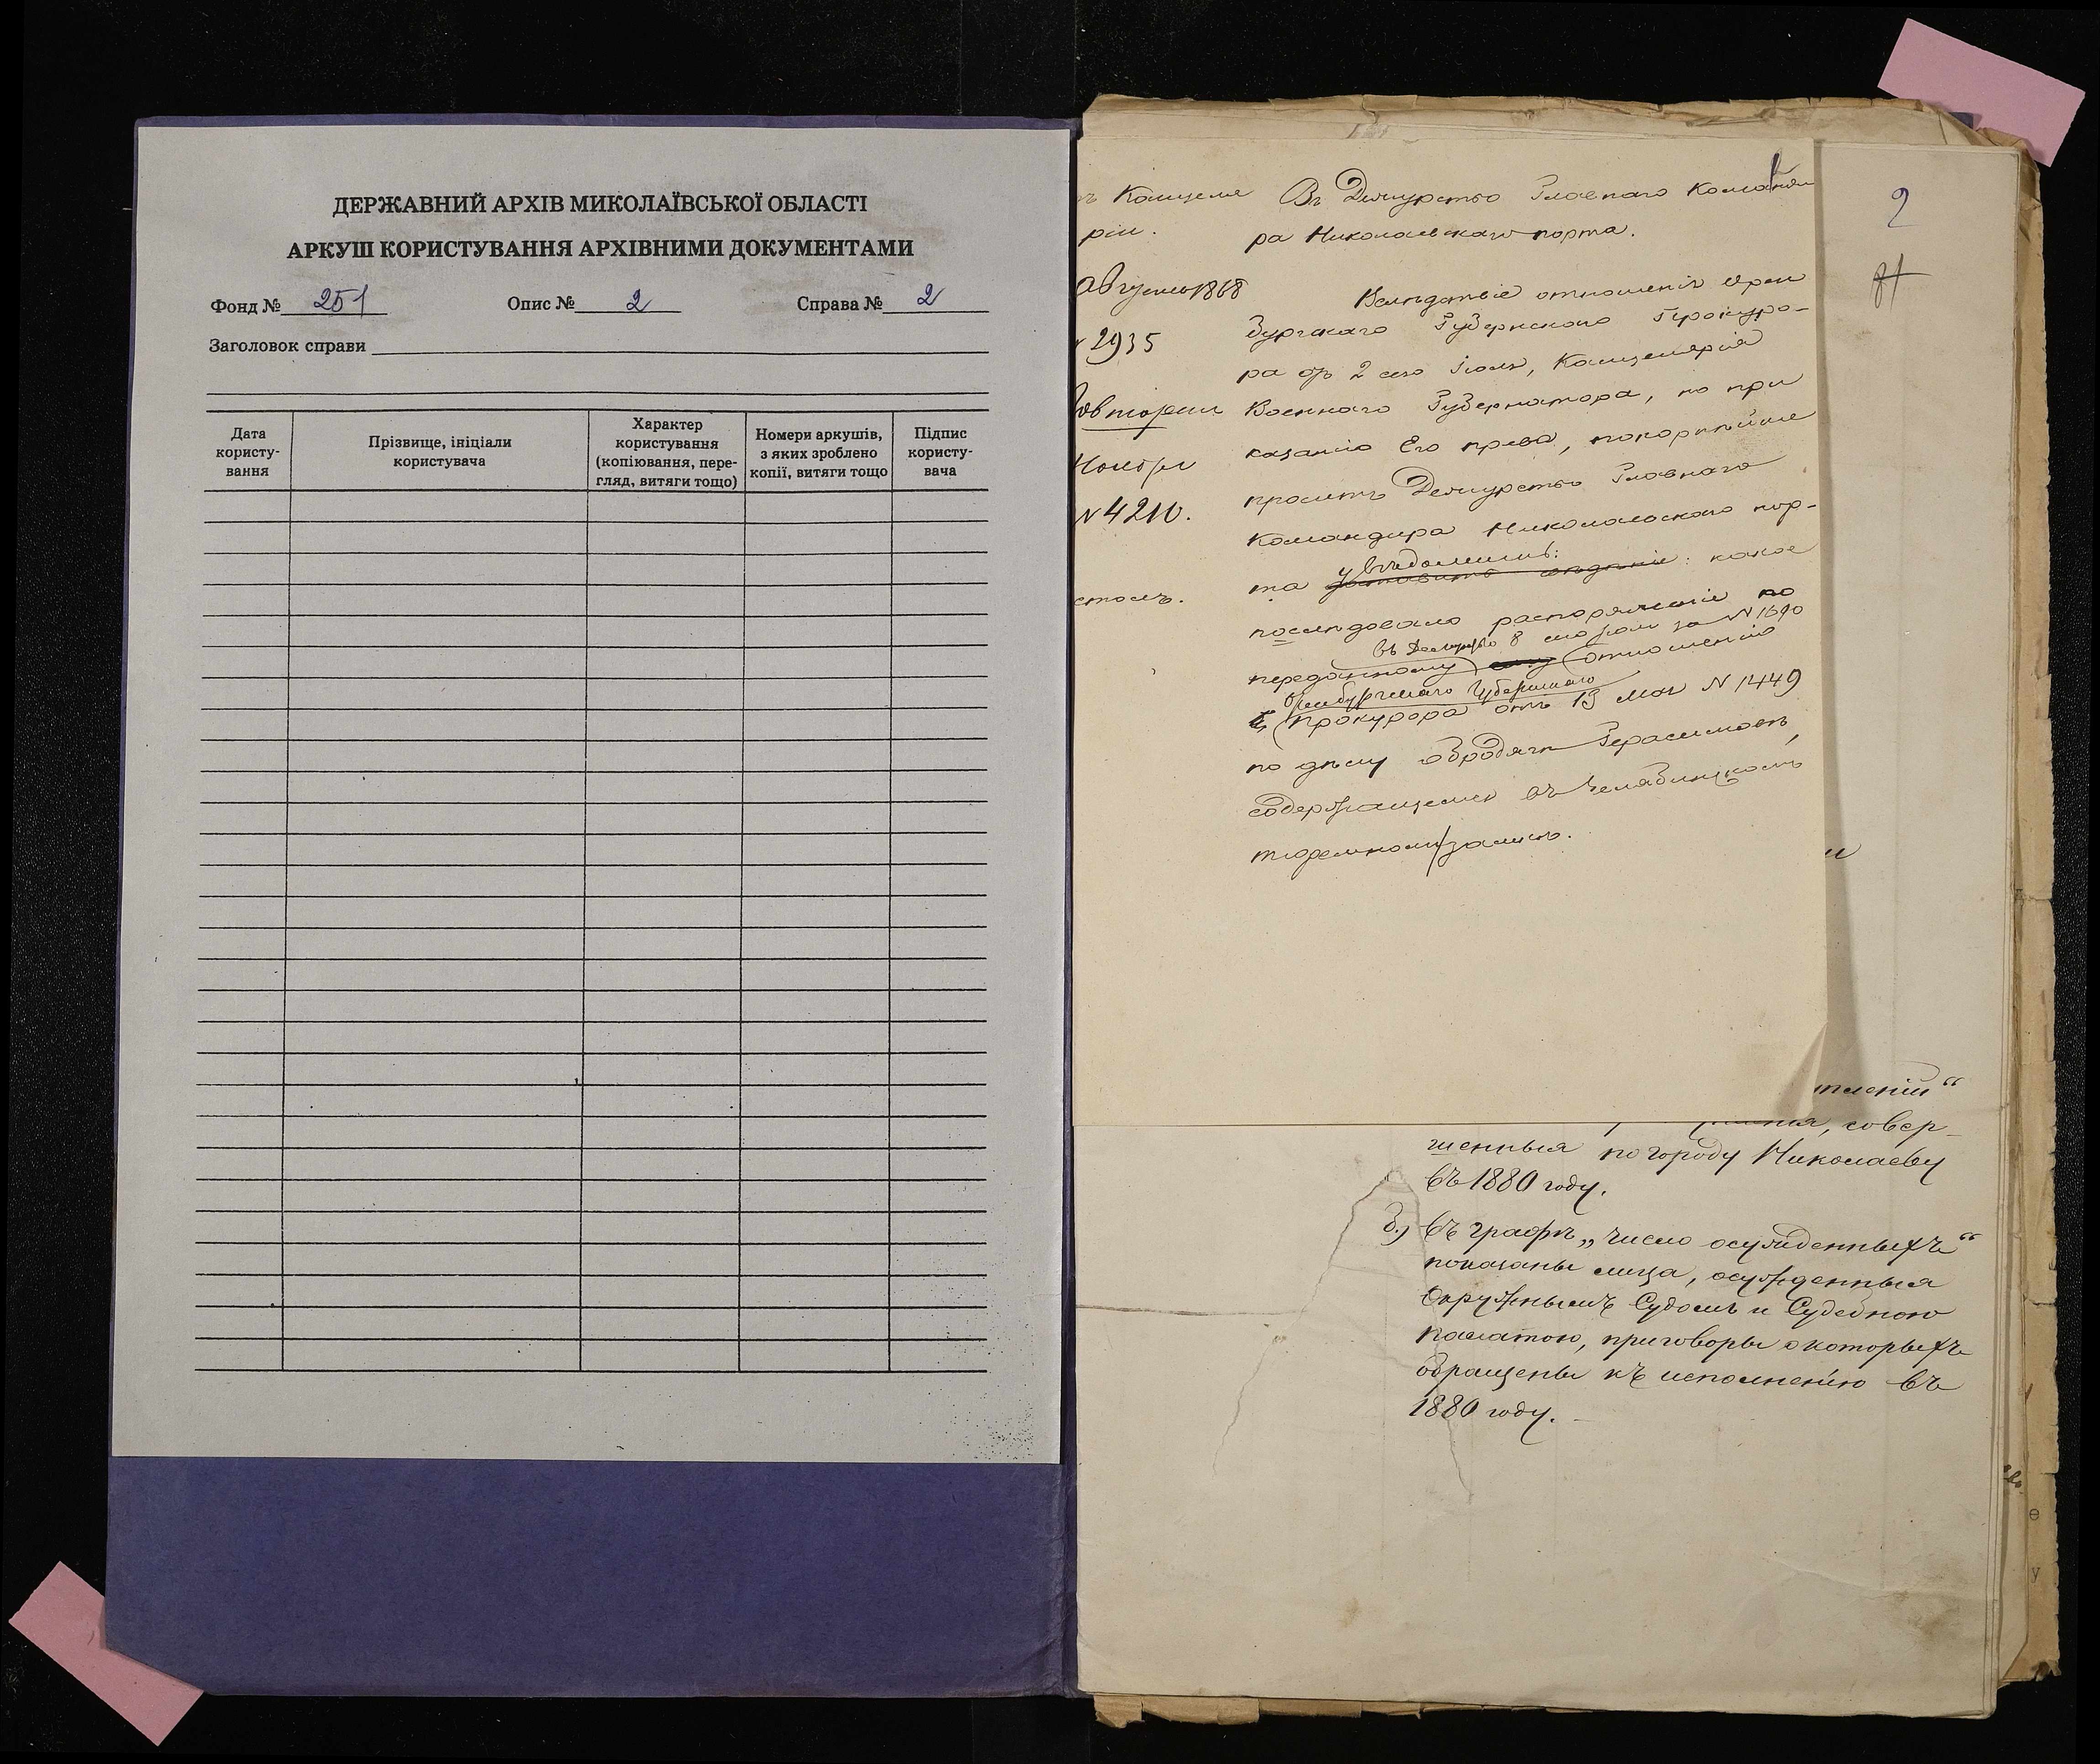 ДЕРЖАВНИЙ АРХІВ МИКОЛАЇВСЬКОЇ ОБЛАСТІ
АРКУШ КОРИСТУВАННЯ АРХІВНИМИ ДОКУМЕНТАМИ
Фонд № 251 Опис № 2 Справа № 2
Заголовок справи
Дата користу-вання
Прізвище, ініціали користувача
Характер користування (копіювання, пере-гляд, витяги тощо)
Номери аркушів, з яких зроблено копії, витяги тощо
Підпис користу-вача
Канцеля
ріи.
Августа 1868
2935
Повторит
Ноября
N 4210.
столъ.
1
Въ Дежурство Главнаго Команди
ра Николаевскаго порта.
Вслѣдствіе отношенія Орен
бургскаго Губернскаго Прокуро-
ра отъ 2 сего Іюля, Канцелярія
Военнаго Губернатора, по при
казанію Его прева, покорнѣйше
проситъ Дежурство Главнаго
Командира Николаевскаго пор-
увѣдомить:
та доставить свѣдѣніе: какое
послѣдовало распоряженіе по
въ Дежурство 8 за N 1690
переданному отношенію
Оренбургскаго Губернскаго
Прокурора отъ 13 Мая N 1449
по дѣлу о бродягѣ Герасимовѣ,
содержащемся въ Челябинскомъ
тюремномъ замкѣ.
2
тленій“
совер-
шенныя по городу Николаеву
въ 1880 году.
б) въ графѣ „число осужденныхъ“
показаны лица, осужденныя
Окружнымъ Судомъ и Судебною
палатою, приговоры о которыхъ
обращены къ исполненію въ
1880 году.